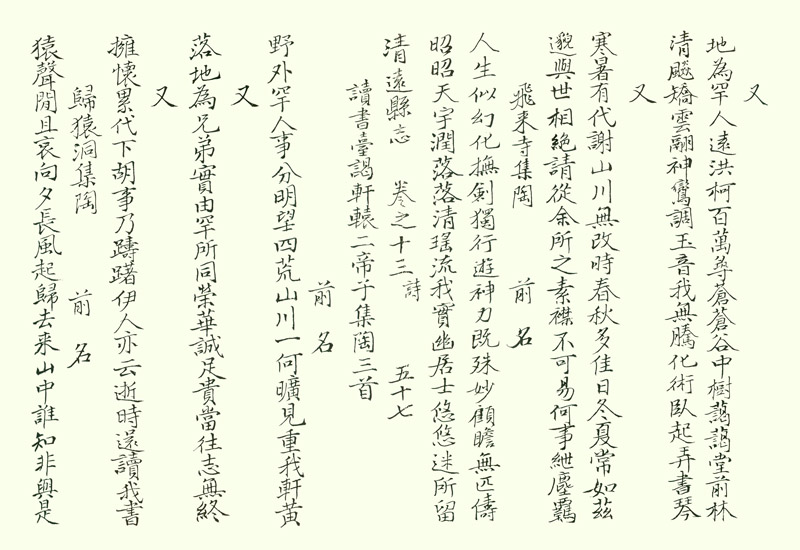 又
地為罕人遠洪柯百萬尋蒼蒼谷中樹藹藹堂前林
清飈矯雲翮神鸞調玉音我無騰化術臥起弄書琴
又
寒暑有代謝山川無改時春秋多佳日冬夏常如茲
邈與世相絕請從余所之素襟不可易何事紲塵羈
飛来寺集陶 前名
人生似幻化撫劍獨行遊神力既殊妙顧瞻無匹儔
昭昭天宇濶落落清瑤流我實幽居士悠悠迷所留
清遠縣志 卷之十三 詩 五十七
讀書臺謁軒轅二帝子集陶三首
前名
野外罕人事分明望四荒山川一何曠見重我軒黃
又
落地為兄弟實由罕所同榮華誠足貴當往志無終
又
擁懷累代下胡事乃躊躇伊人亦云逝時還讀我書
歸猿洞集陶 前名
猿聲閒且哀向夕長風起歸去来山中誰知非與是